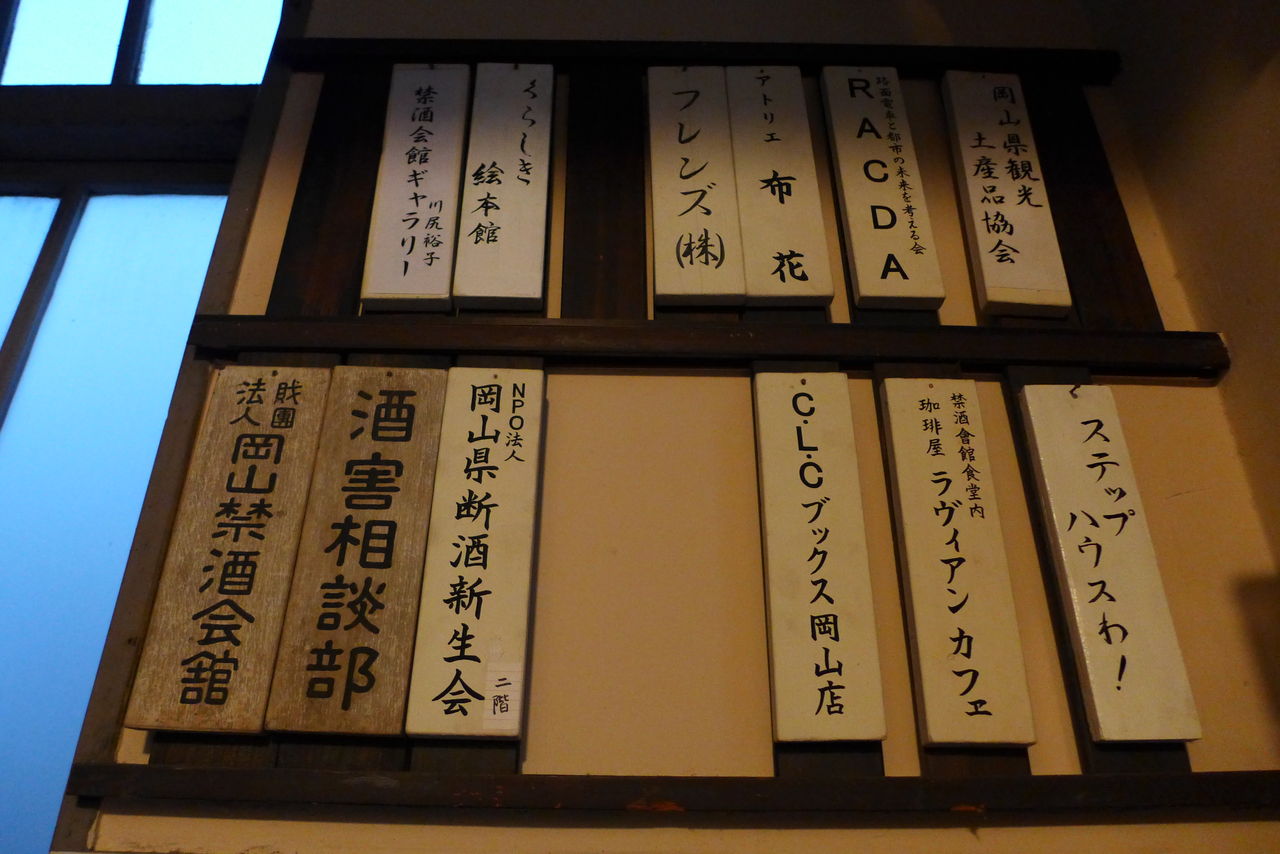 岡山県観光
土産品協会
路面電車と都市の未来を考える会
RACDA
アトリエ 布花
フレンズ(株)
くらしき
絵本館
禁酒会館ギャラリー
川尻裕子
ステップ
ハウスわ!
禁酒會館食堂内
珈琲屋 ラヴィアンカフェ
C.L.Cブックス岡山店
NPO法人
岡山県断酒新生会
二階
酒害相談部
財團
法人
岡山禁酒会館